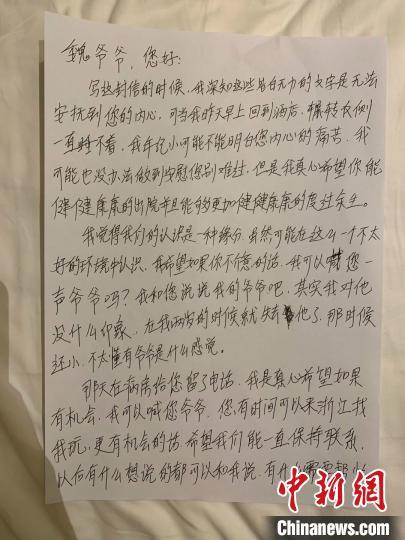 魏爷爷，您好：
写这封信的时候，我深知这些苍白无力的文字是无法
安抚到您的内心，可当我昨天早上回到酒店，辗转反侧
一直睡不着，我年纪小可能不能明白您内心的痛苦，我
可能也没办法做到安慰您别难过，但是我真心希望你能
健健康康的出院并且能够更加健健康康的度过余生。
我觉得我们的认识是一种缘分，虽然可能在这么一个不太
好的环境中认识，我希望如果你不介意的话，我可以喊您一
声爷爷吗？我和您说说我的爷爷吧，其实我对他
没什么印象，在我两岁的时候就失去他了，那时候
还小，不太懂有爷爷是什么感觉。
那天在病房给您留了电话，我是真心希望如果
有机会，我可以喊你爷爷，您有时间可以来浙江找
我玩，更有机会的话希望我们能一直保持联系，
以后有什么想说的都可以和我说，有什么需要
中新网
Chinanews.com